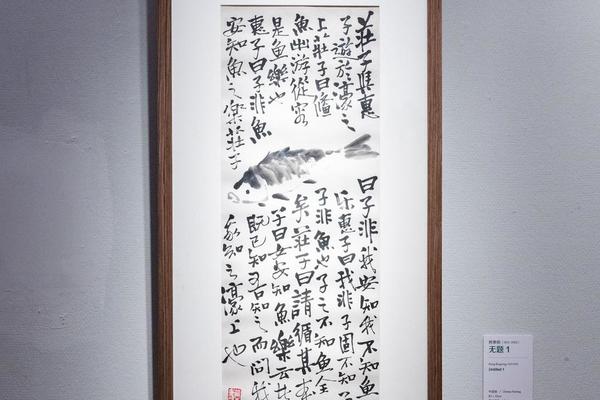 莊子與惠
子遊於濠之
上莊子曰儵
魚幽游從容
是鱼樂也
惠子曰子非魚
安知魚之樂莊子
曰子非我安知我不知魚
乐惠子曰我非子固不知
子非魚也子之不知魚全
矣莊子曰請循其本
子曰女安知魚樂云
既已知吾知之而問我
我知之濠上也
无题 1
Untitled 1